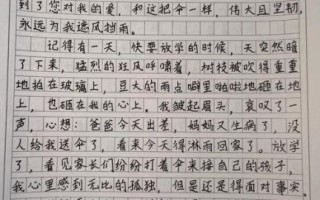 到了您对我的爱,和这把伞一样,伟大且坚韧,
永远为我遮风挡雨。
记得有一天,快要放学的时候,天突然暗
了下来,猛烈的狂风呼啸着,树枝被吹得重重
地拍在玻璃上,豆大的雨点噼里啪啦地砸在地
上,也砸在我的心上。我皱起眉头,哀叹了一
声,心想:爸爸今天出差,妈妈又生病了,没
人给我送伞了,看来今天得淋雨回家了。放学
了,看见家长们纷纷打着伞来接自己的孩子,
我心里感到无比的孤独,但是还是得面对事实